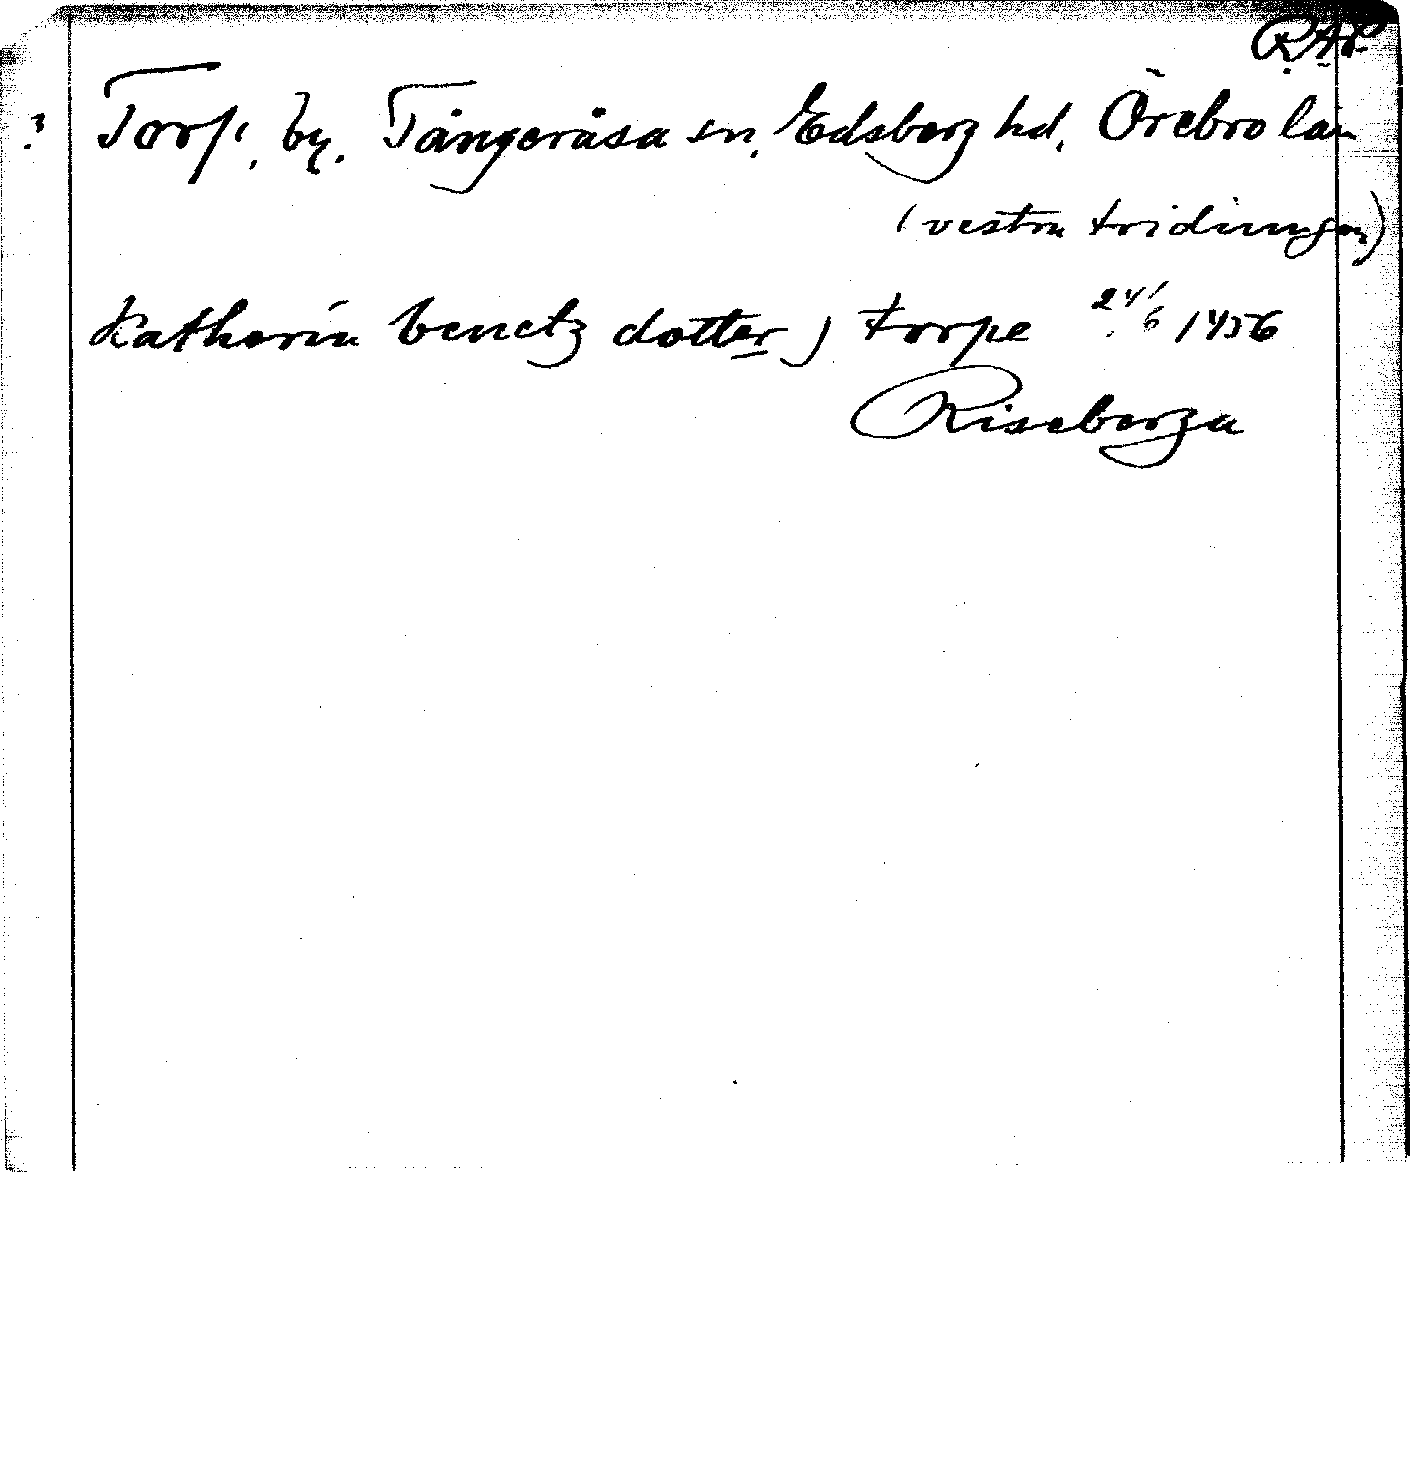 R.A.P.
? Torp, by. Tångeråsa sn, Edsberg hd, Örebro län
(vestra tridiungen)
Katherin benctz dotter j torpe 24/6 1456
Riseberga